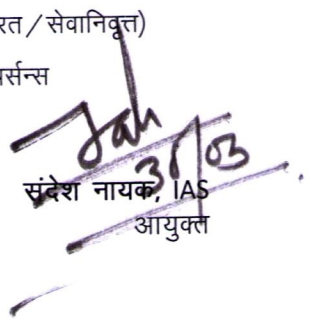 रत / सेवानिवृत्त)
र्सन्स
संदेश नायक, IAS
आयुक्त